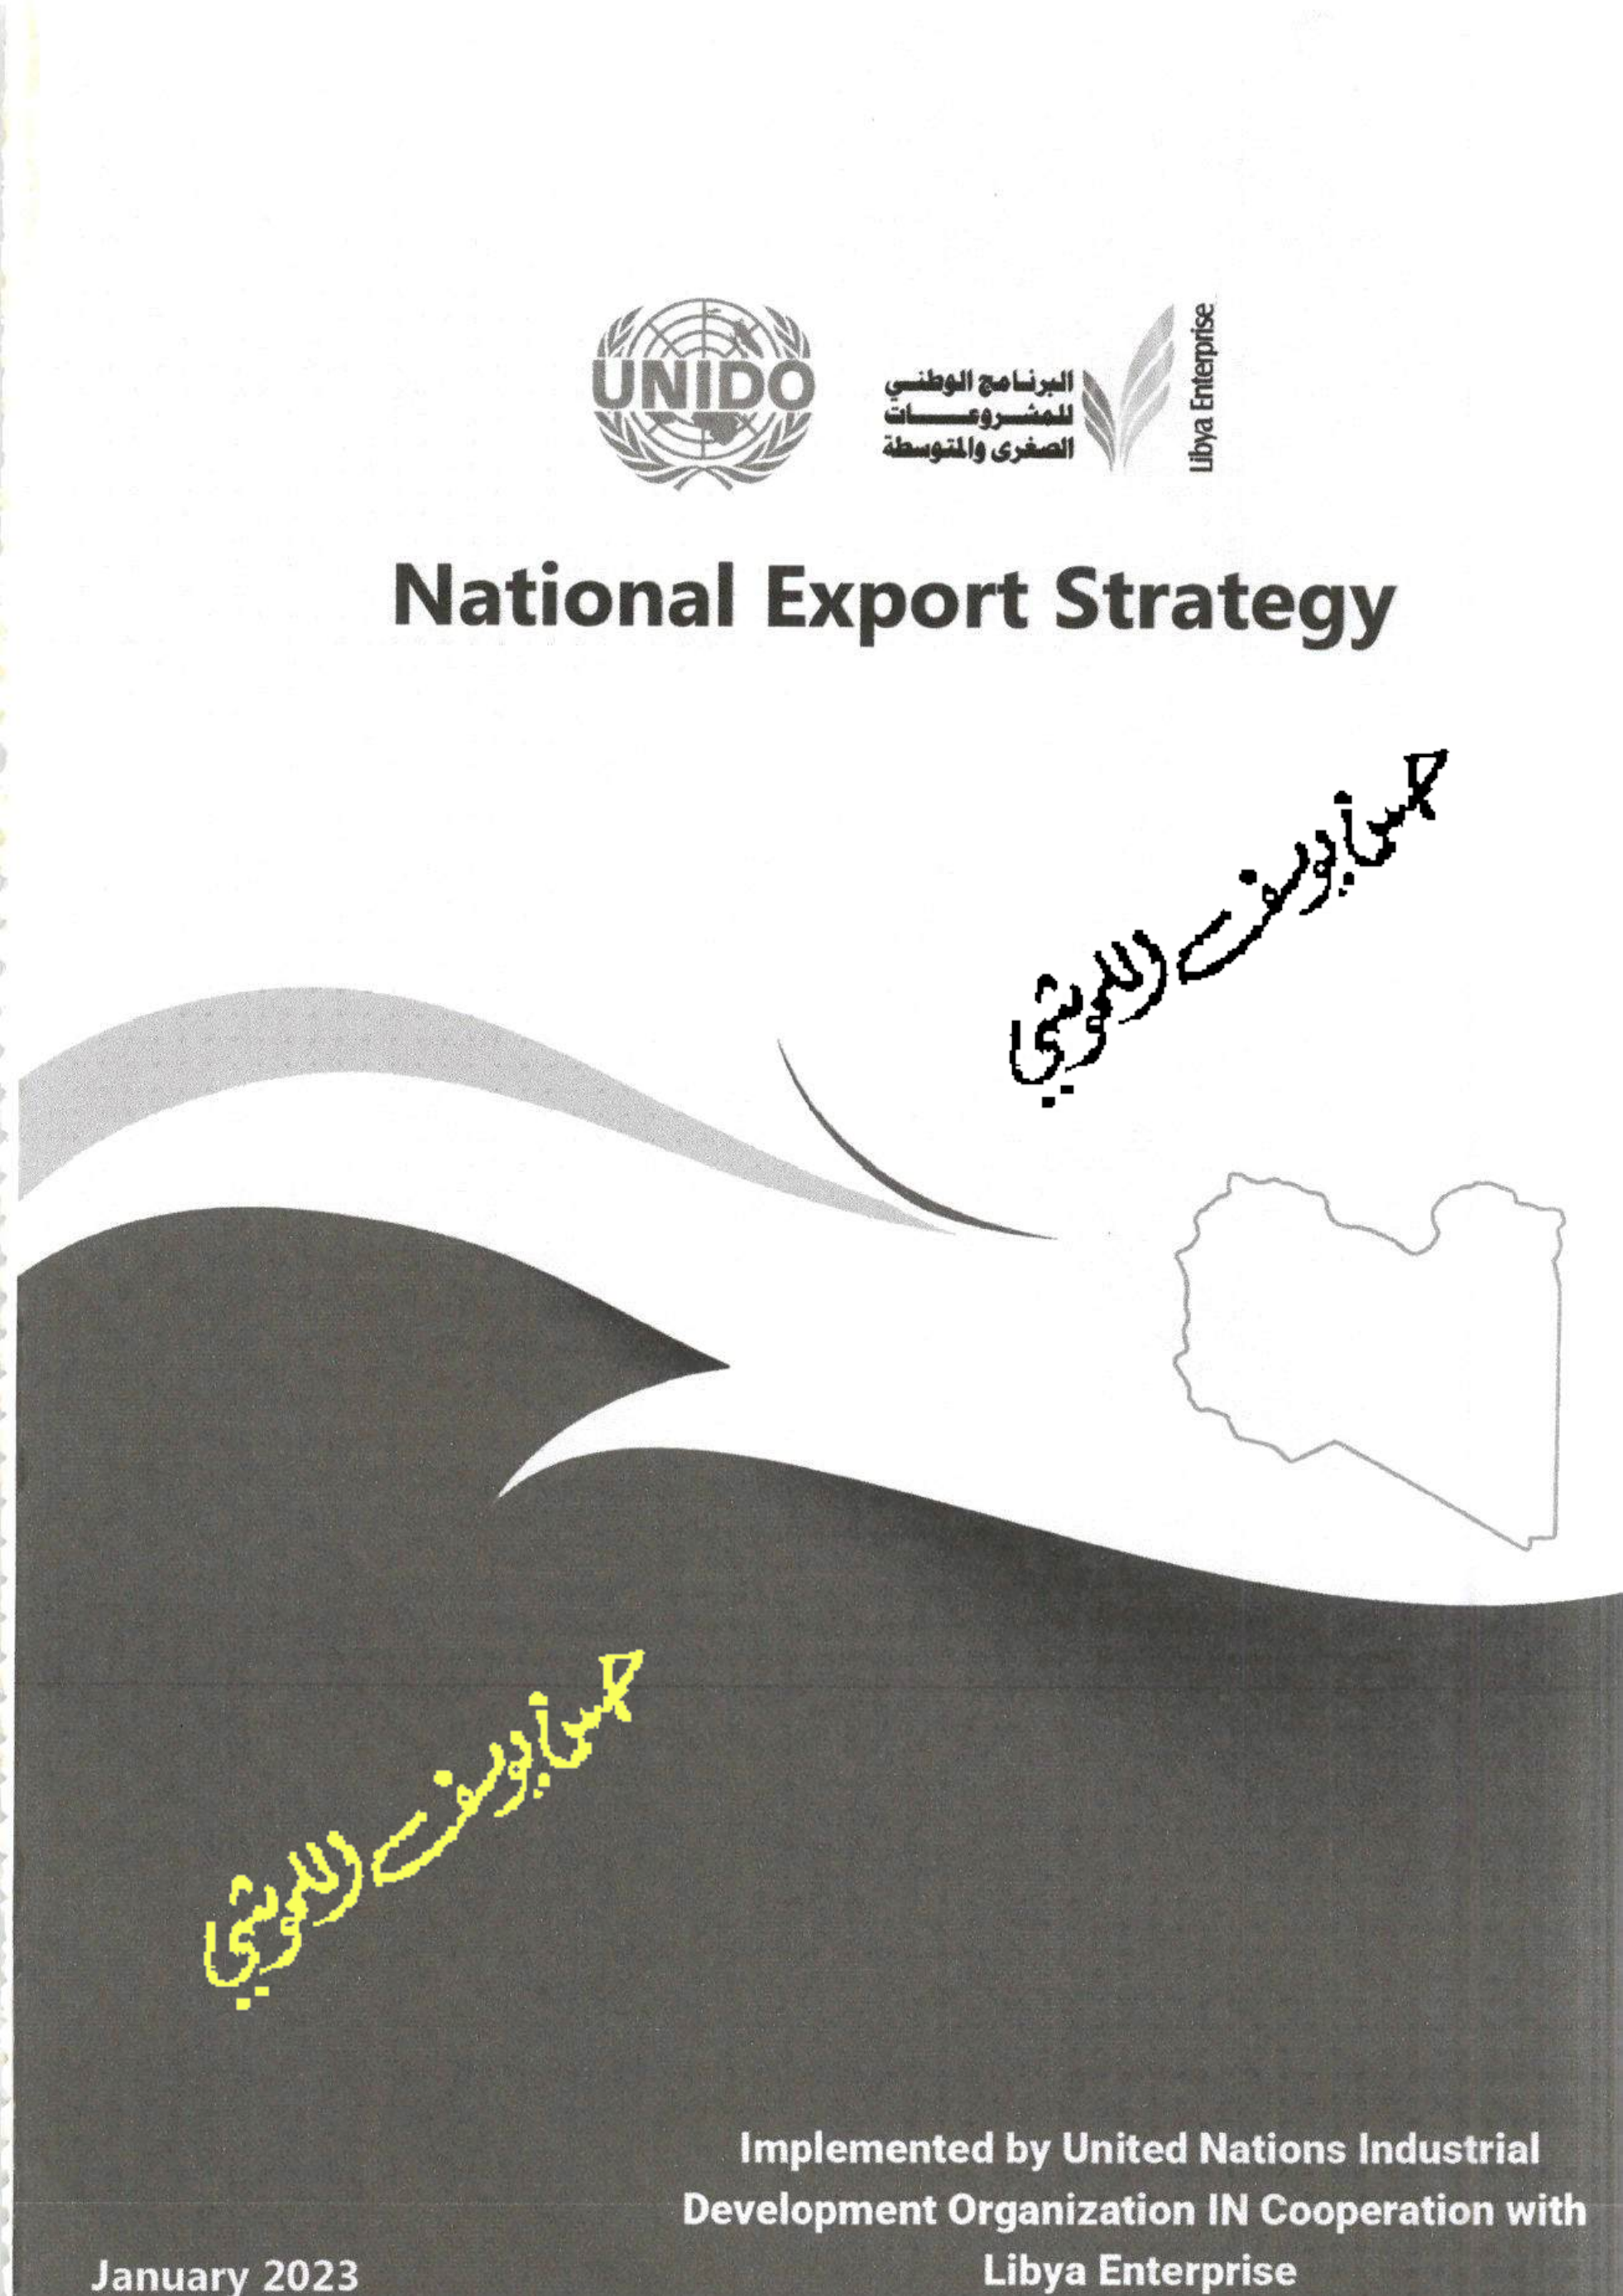 UNIDO
البرنامج الوطني
للمشروعات
الصغرى والمتوسطة
Libya Enterprise
National Export Strategy
حسن يوسف
حسن يوسف
Implemented by United Nations Industrial
Development Organization IN Cooperation with
Libya Enterprise
January 2023